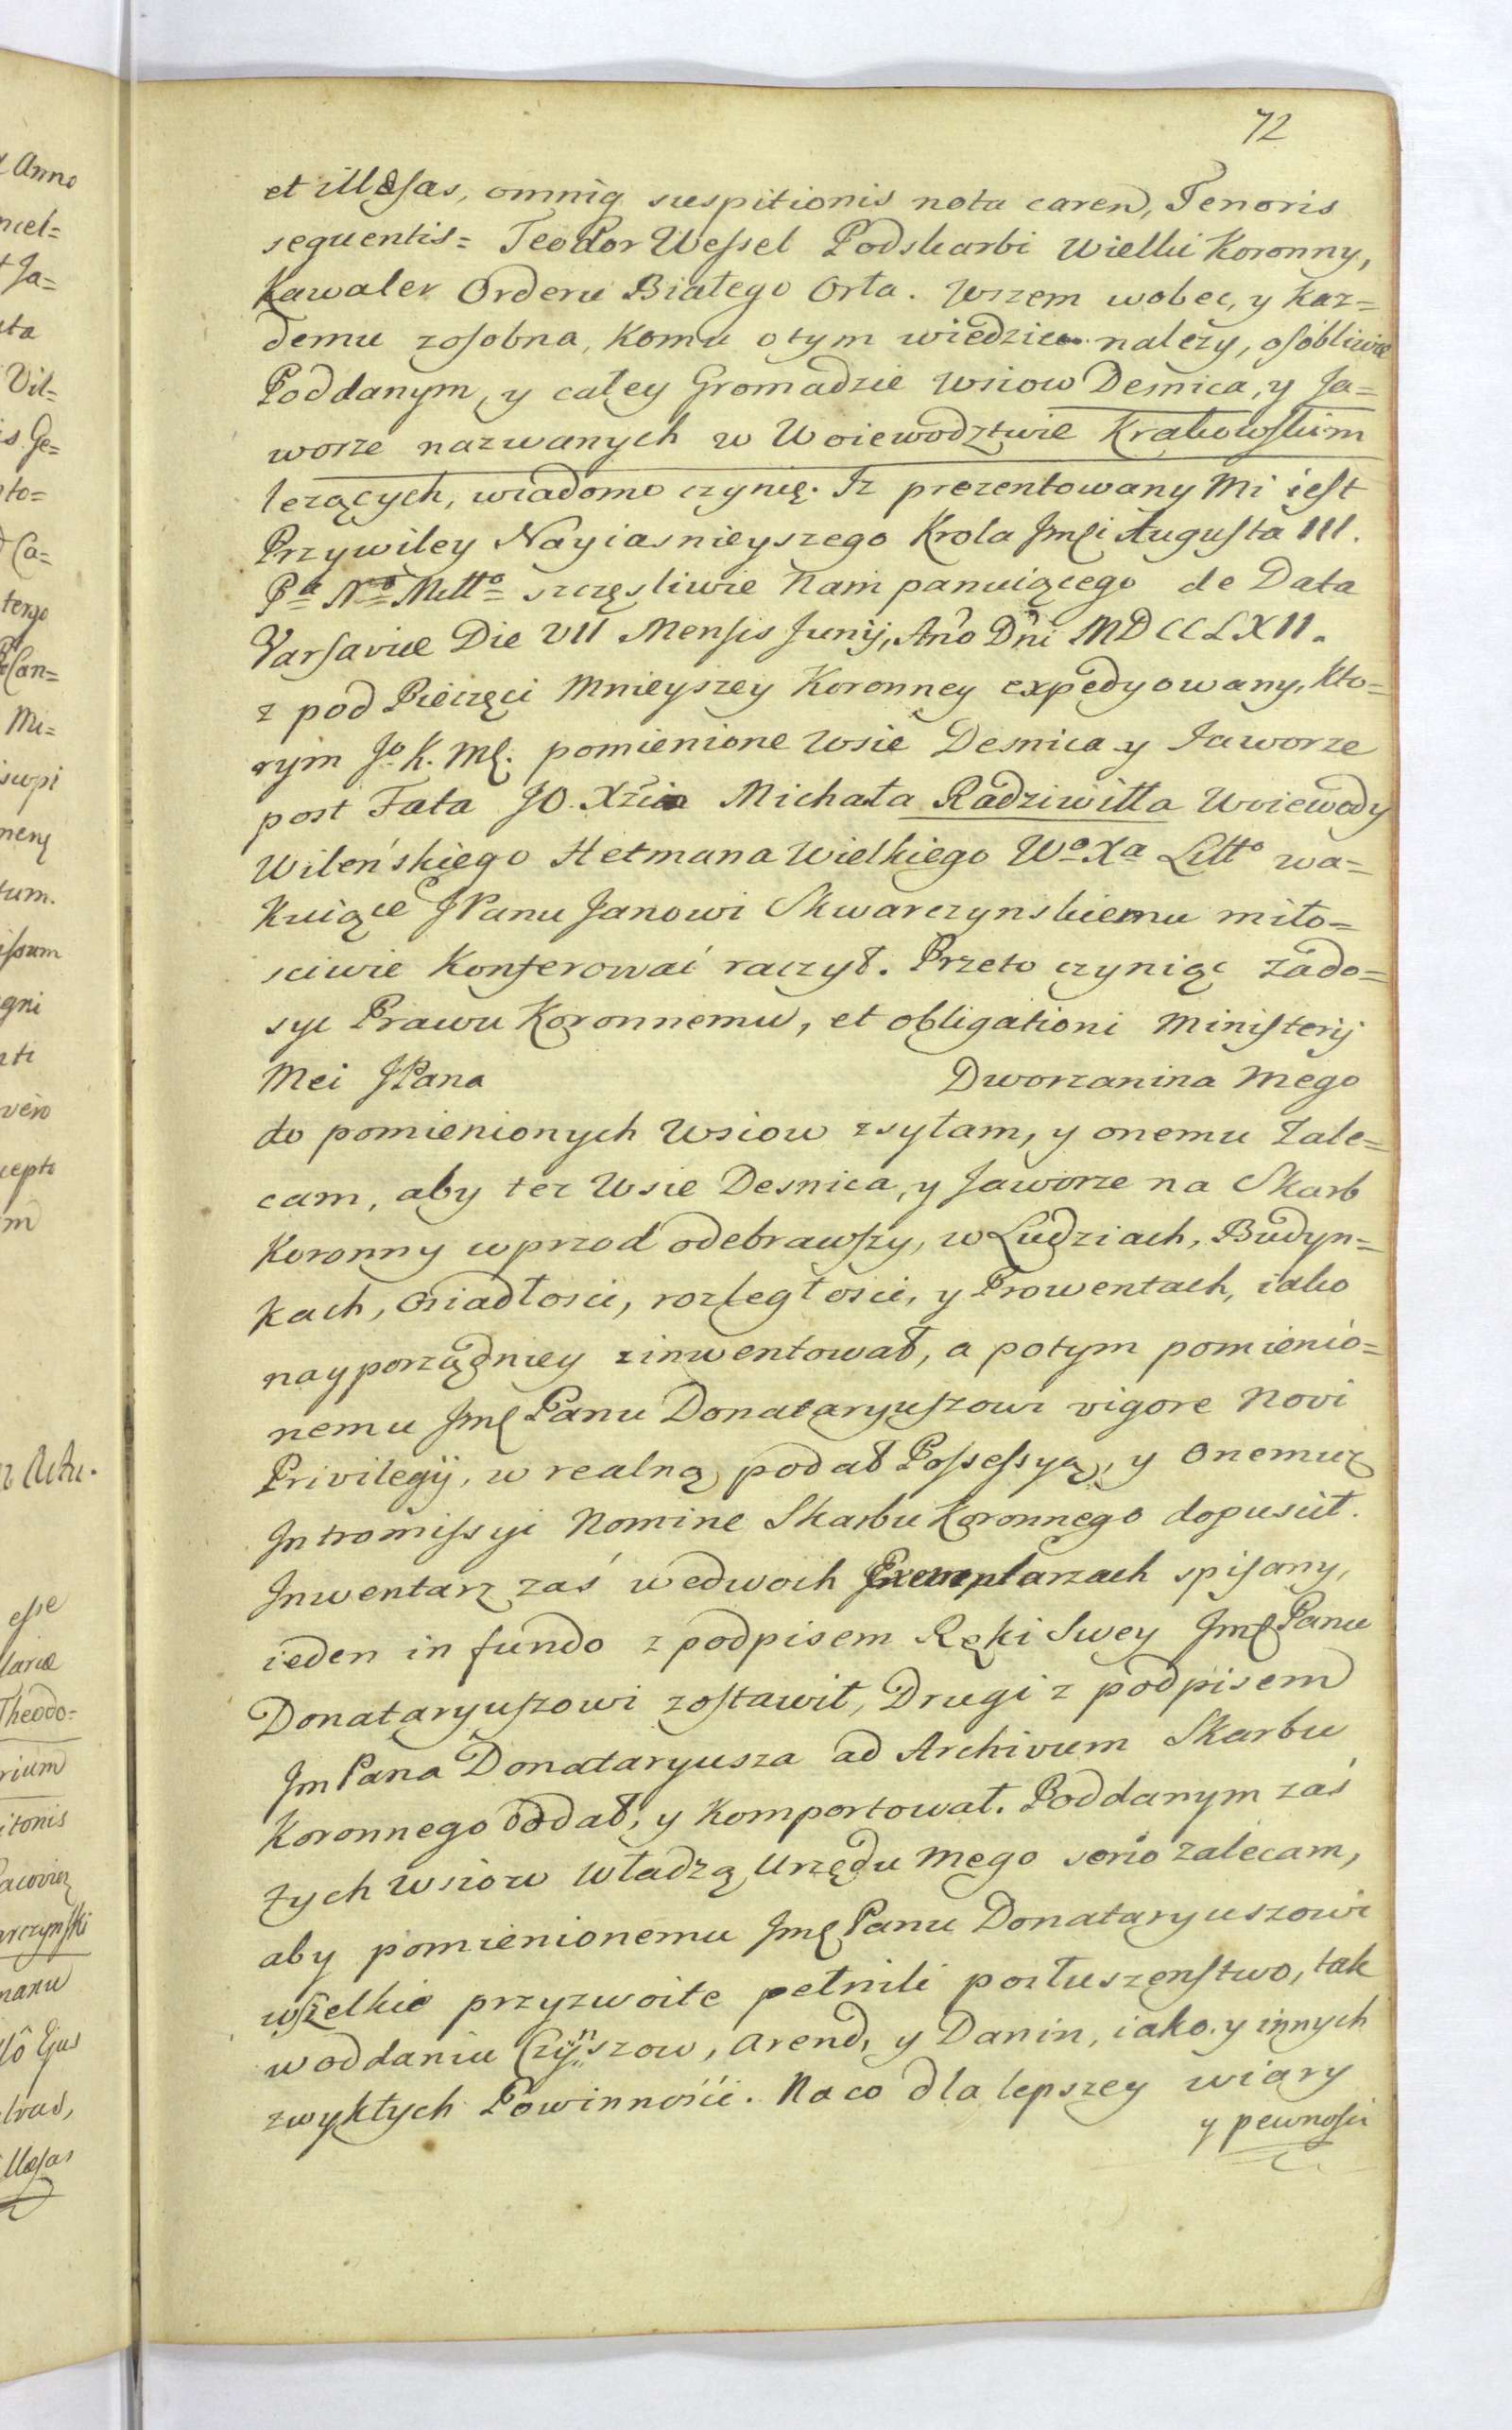 72
et illæsas, omniq suspitionis nota caren, Tenoris
sequentis= Teodor Wessel Podskarbi Wielki Koronny,
Kawaler Orderu Białego Orła. Wszem wobec, y każ=
demu zosobna, komu o tym wiedziec należy, osobliwie
Poddanym, y całey Gromadzie Wsiow Desnica, y Ja=
worze nazwanych w Woiewodztwie Krakowskim
leżących, wiadomo czynię. Iż prezentowany Mi iest
Przywiley Nayiasnieyszego Krola Jmci Augusta III.
Pa No Mttо szczęsliwie Nam panuiącego de Data
Varsaviæ Die VII Mensis Junij, Ano Dni MDCCLXII.
z pod Pieczęci Mnieyszey Koronney expedyowany, kto=
rym Jo K. Mć. pomienione Wsie Desnica y Jaworze
post Fata JO. Xcia Michała Radziwiłła Woiewody
Wileńskiego Hetmana Wielkiego Wo Xa Litto wa=
kuiące JPanu Janowi Skwarczynskiemu miło=
sciwie konferować raczył. Przeto czyniąc zado=
syc Prawu Koronnemu, et obligationi Ministerij
Mei JPana Dworzanina Mego
do pomienionych Wsiow zsyłam, y onemu zale=
cam, aby tez Wsie Desnica, y Jaworze na Skarb
Koronny wprzod odebrawszy, w Ludziach, Budyn=
kach, osiadłosci, rozległosci, y Prowentach, iako
nayporządniey zinwentował, a potym pomienio=
nemu Jmć Panu Donataryuszowi vigore Novi
Privilegij, w realną podał Possessyą, y onemuż
Intromissyi Nomine Skarbu Koronnego dopuscił.
Inwentarz zaś wedwoch Exemplarzach spisany,
ieden in fundo z podpisem Ręki Swey Jmć Panu
Donataryuszowi zostawił, Drugi z podpisem
Jm Pana Donataryusza ad Archivum Skarbu
Koronnego oddał, y komportował. Poddanym zaś
tych Wsiow Władzą Urzędu mego serio zalecam,
aby pomienionemu Jmć Panu Donataryuszowi
wszelkie przyzwoite pełnili posłuszenstwo, tak
w oddaniu Czynszow, arend, y Danin, iako y innych
zwykłych Powinności. Na co dla lepszey wiary
y pewnosci